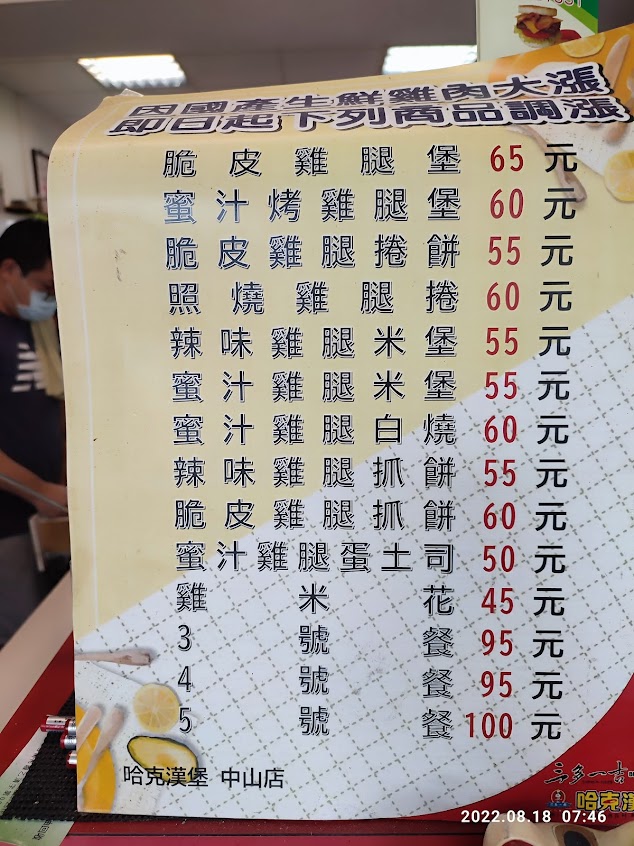 因國產生鮮雞肉大漲
即日起下列商品調漲
脆皮雞腿堡 65元
蜜汁烤雞腿堡 60元
脆皮雞腿捲餅 55元
照燒雞腿捲 60元
辣味雞腿米堡 55元
蜜汁雞腿米堡 55元
蜜汁雞腿白燒 60元
辣味雞腿抓餅 55元
脆皮雞腿抓餅 60元
蜜汁雞腿蛋土司 50元
雞米花 45元
3號餐 95元
4號餐 95元
5號餐 100元
哈克漢堡 中山店
三多一吉
哈克漢
2022.08.18 07:46